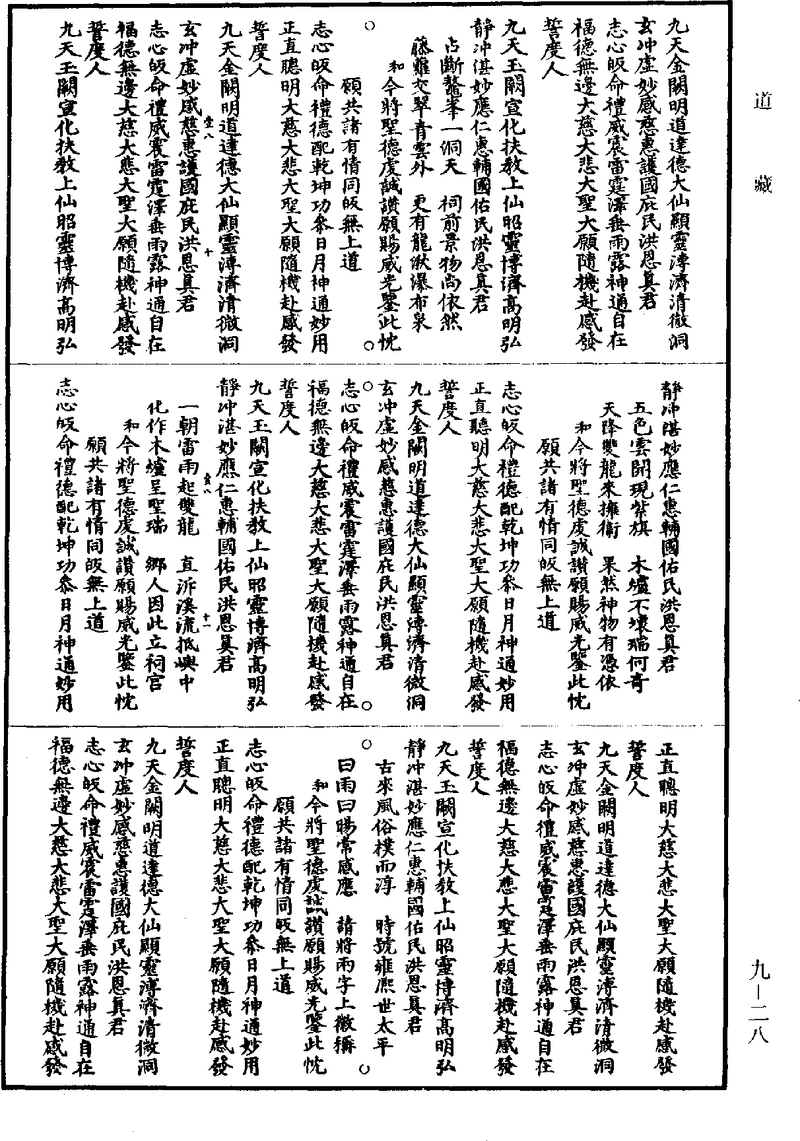 道藏
九天金闕明道達德大仙顯靈溥濟清微洞
玄冲虛妙感慈惠護國庇民洪恩真君
志心皈命禮威震雷霆澤垂雨露神通自在
福德無邊大慈大悲大聖大願隨機赴感發
誓度人
九天玉闕宣化扶教上仙昭靈博濟高明弘
靜冲湛妙應仁惠輔國佑民洪恩真君
占斷鰲峯一洞天　祠前景物尚依然
藤蘿交翠青雲外　更有龍湫瀑布泉
和今將聖德虔誠讚願賜威光鑒此忱
願共諸有情同皈無上道
○　○
志心皈命禮德配乾坤功叅日月神通妙用
正直聰明大慈大悲大聖大願隨機赴感發
誓度人
九天金闕明道達德大仙顯靈溥濟清微洞
玄冲虛妙感慈惠護國庇民洪恩真君
志心皈命禮威震雷霆澤垂雨露神通自在
福德無邊大慈大悲大聖大願隨機赴感發
誓度人
九天玉闕宣化扶教上仙昭靈博濟高明弘
靜冲湛妙應仁惠輔國佑民洪恩真君
五色雲開現紫旗　木爐不壞瑞何奇
天降雙龍來擁衛　果然神物有憑依
和今將聖德虔誠讚願賜威光鑒此忱
願共諸有情同皈無上道
志心皈命禮德配乾坤功叅日月神通妙用
正直聰明大慈大悲大聖大願隨機赴感發
誓度人
九天金闕明道達德大仙顯靈溥濟清微洞
玄冲虛妙感慈惠護國庇民洪恩真君
○　○
志心皈命禮威震雷霆澤垂雨露神通自在
福德無邊大慈大悲大聖大願隨機赴感發
誓度人
九天玉闕宣化扶教上仙昭靈博濟高明弘
靜冲湛妙應仁惠輔國佑民洪恩真君
十一
一朝雷雨起雙龍　直泝溪流抵嶼中
化作木爐呈聖瑞　鄉人因此立祠宮
和今將聖德虔誠讚願賜威光鑒此忱
願共諸有情同皈無上道
志心皈命禮德配乾坤功叅日月神通妙用
正直聰明大慈大悲大聖大願隨機赴感發
誓度人
九天金闕明道達德大仙顯靈溥濟清微洞
玄冲虛妙感慈惠護國庇民洪恩真君
志心皈命禮威震雷霆澤垂雨露神通自在
福德無邊大慈大悲大聖大願隨機赴感發
誓度人
九天玉闕宣化扶教上仙昭靈博濟高明弘
靜冲湛妙應仁惠輔國佑民洪恩真君
古來風俗樸而淳　時號雍熙世太平
○　○
曰雨曰暘常感應　請將兩字上徽稱
和今將聖德虔誠讚願賜威光鑒此忱
願共諸有情同皈無上道
志心皈命禮德配乾坤功叅日月神通妙用
正直聰明大慈大悲大聖大願隨機赴感發
誓度人
九天金闕明道達德大仙顯靈溥濟清微洞
玄冲虛妙感慈惠護國庇民洪恩真君
志心皈命禮威震雷霆澤垂雨露神通自在
福德無邊大慈大悲大聖大願隨機赴感發
九—二八